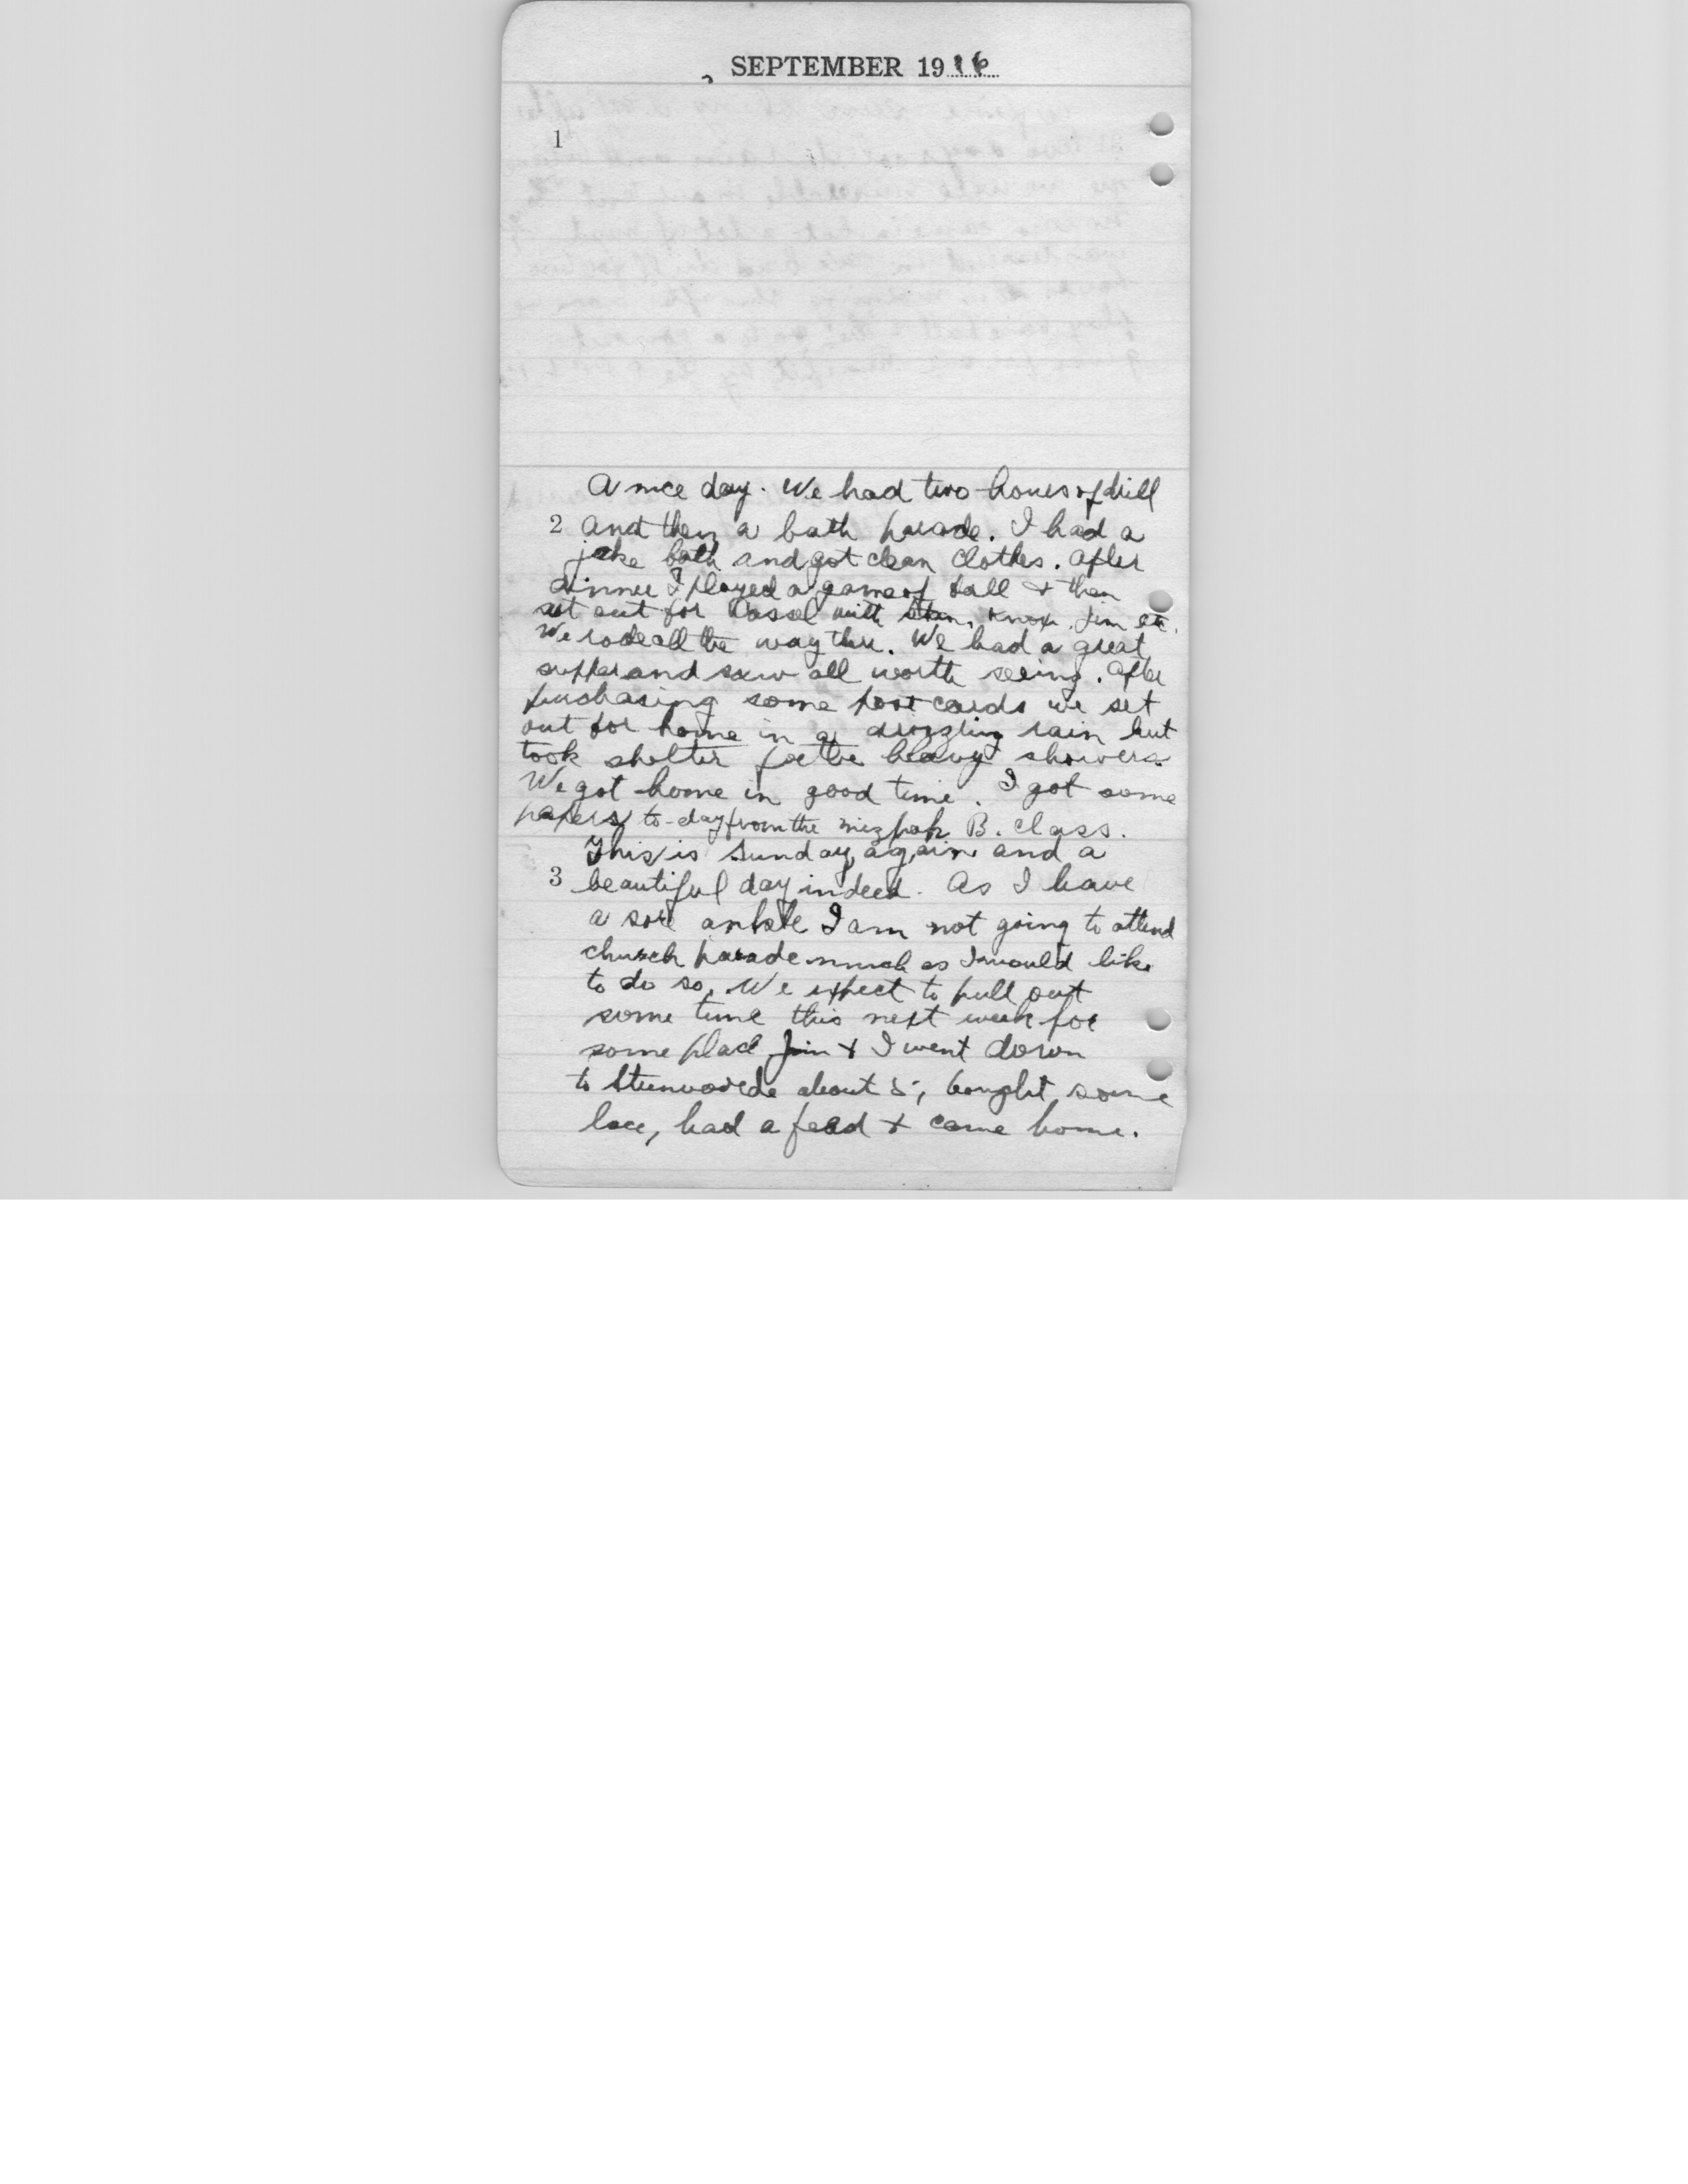 SEPTEMBER 1916
1
A nice day. We had two hours of drill
2 and then a bath parade. I had a
jake bath and got clean clothes. After
dinner I played a game of ball + then
set out for Cassel with Stan, Knox, Jim etc.
We rode all the way thru. We had a great
supper and saw all worth seeing. After
purchasing some post cards we set
out for home in a drizzling rain but
took shelter for the heavy showers.
We got home in good time. I got some
papers to-day from the Mizpah B. Class.
This is Sunday again and a
3 beautiful day indeed. As I have
a sore ankle I am not going to attend
church parade much as I would like
to do so. We expect to pull out
some time this next week for
some place Jim + I went down
to Steenvorde about 5, bought some
lace, had a feed + came home.